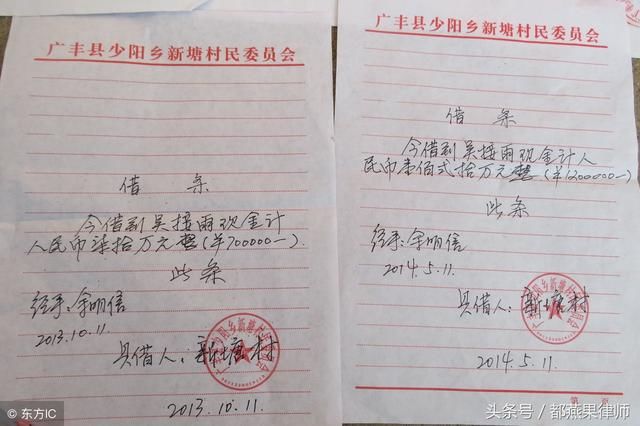 广丰县少阳乡新塘村民委员会
借 条
今借到吴接雨现金计
人民币柒拾万元整(¥700000—).
此条
经手:余明信
2013.10.11
具借人:新塘村
2013.10.11.
广丰县少阳乡新塘村民委员会
借 条
今借到吴接雨现金计人
民币壹佰弍拾万元整(¥1200000—)
此条
经手:余明信
2014.5.11.
具借人:新塘村
2014.5.11.
第 页
© 东方IC
头条号 / 都燕果律师